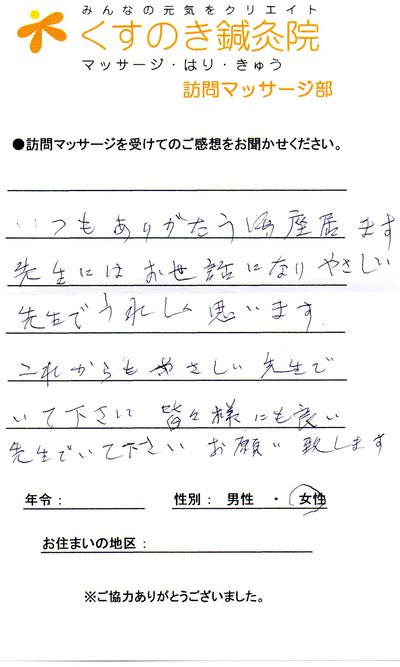 みんなの元気をクリエイト
くすのき鍼灸院
マッサージ・はり・きゅう
訪問マッサージ部
●訪問マッサージを受けてのご感想をお聞かせください。
いつもありがたう御座居ます
先生にはお世話になりやさしい
先生でうれしく思います
これからもやさしい先生で
いて下さに皆々様にも良い
先生でいて下さいお願い致します
年令：
性別：男性・女性
お住まいの地区：
※ご協力ありがとうございました。